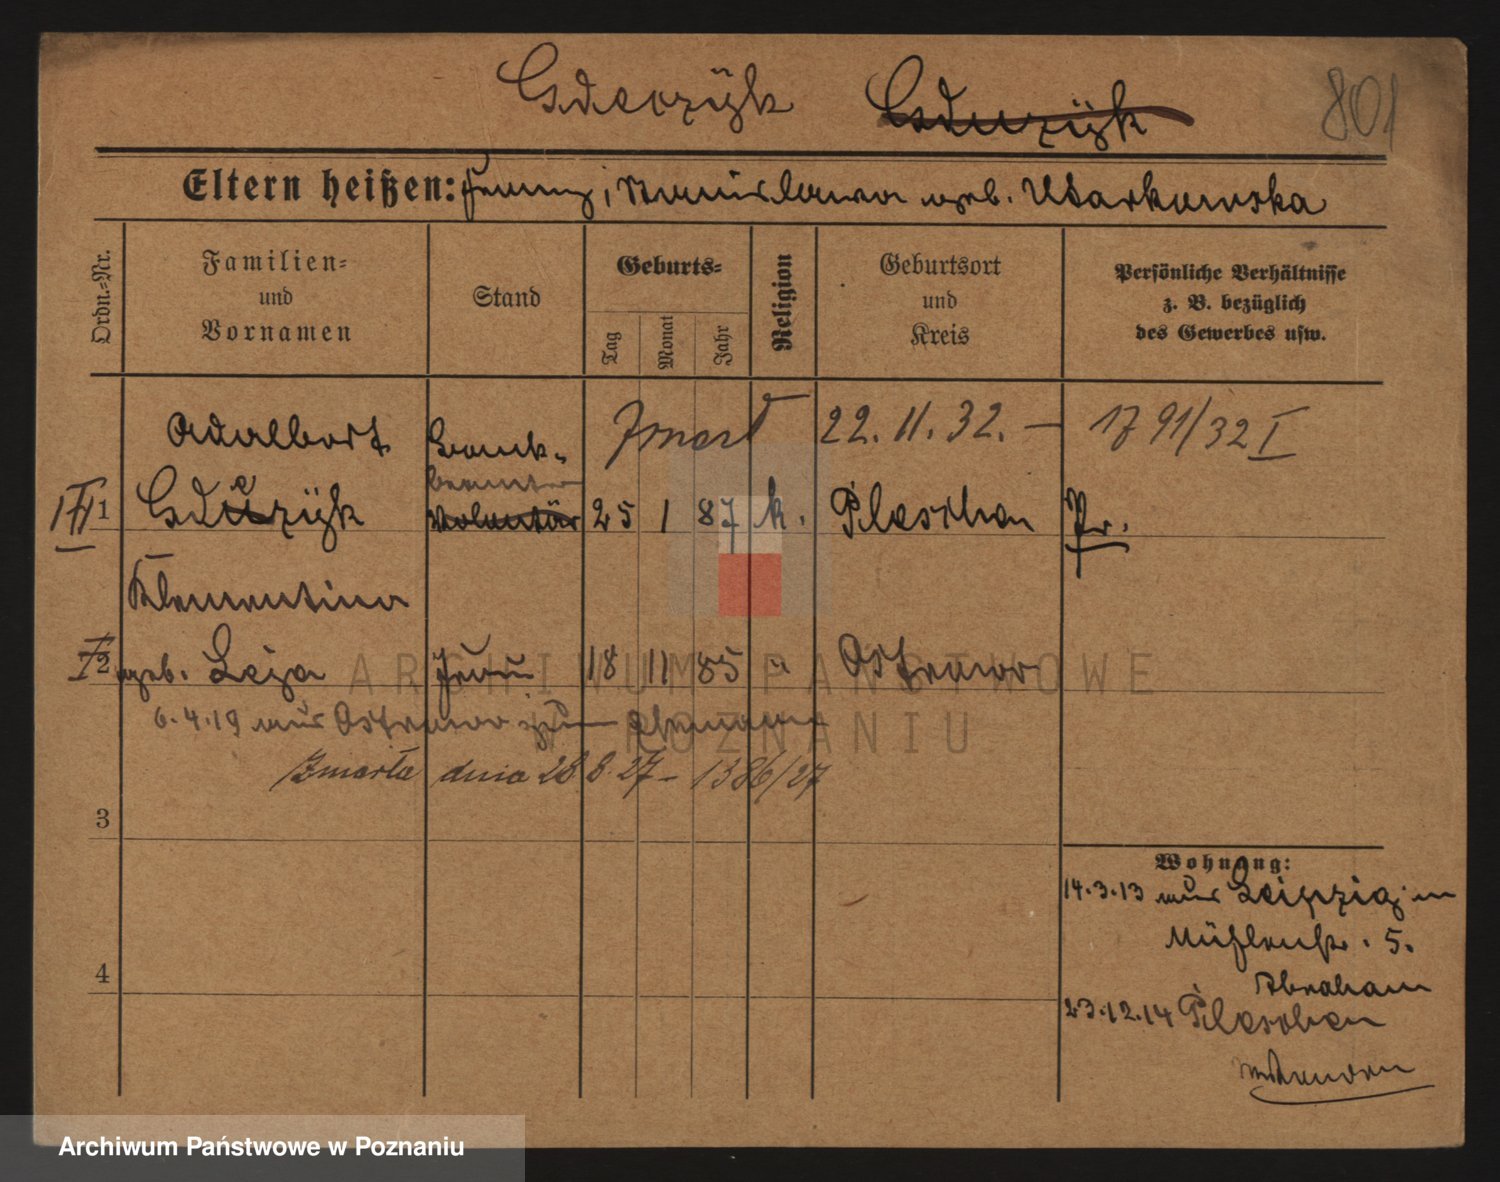 Gdeczÿk Gduczÿk 801
Eltern heißen: Franz, Stanislawa geb. Utarkowska
Ordn.-Nr.
Familien-
und
Vornamen
Stand
Geburts-
Tag
Monat
Jahr
Religion
Geburtsort
und
Kreis
Persönliche Verhältnisse
z. B. bezüglich
des Gewerbes usw.
Adalbert Bank- Zmarł 22.11.32. — 1791/32 I
beamter
1 Gdeczÿk Volontär 25 1 87 k. Pleschen Pr.
Klementina
2 geb. Leja Frau 18 11 85 " Ostrowo
6.4.19 aus Ostrowo zum Ehemann
Zmarła dnia 28 8. 27 – 1386/27
3
4
Wohnung:
14.3.13 aus Leipzig in
Mühlenstr. 5.
Abraham
23.12.14 Pleschen
ARCHIWUM PAŃSTWOWE
W POZNANIU
Archiwum Państwowe w Poznaniu